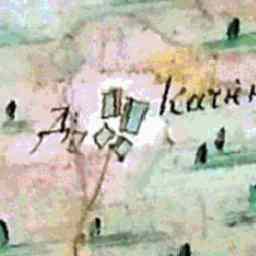 Д. Качин